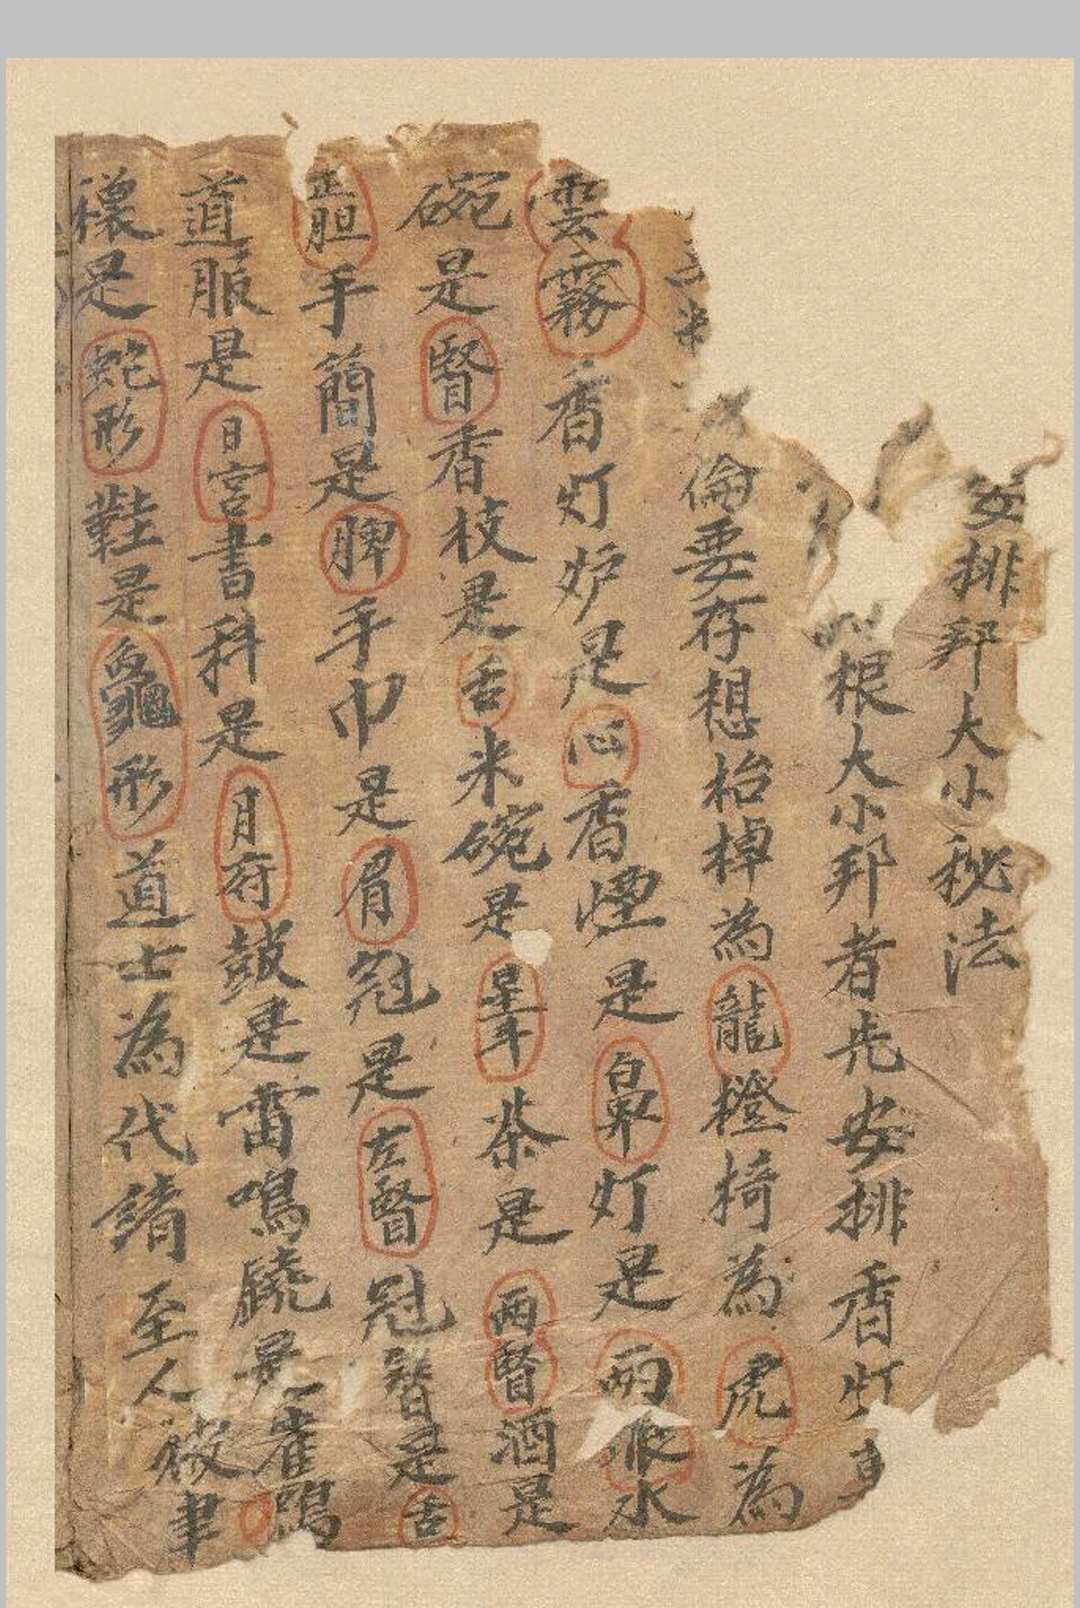 安排邦大小秘法
根大小邦者先安排香灯
倫要存想枱棹為龍橙椅為虎為
雲霧香灯炉是心香煙是鼻灯是兩眼水
碗是腎香枝是舌米碗是星斗茶是兩腎酒是
胆手簡是脾手巾是眉冠是左腎冠簪是舌
道服是日宮書科是月府鼓是雷鳴鐃是雀
穰是蛇形鞋是龜形道士為代緒至人